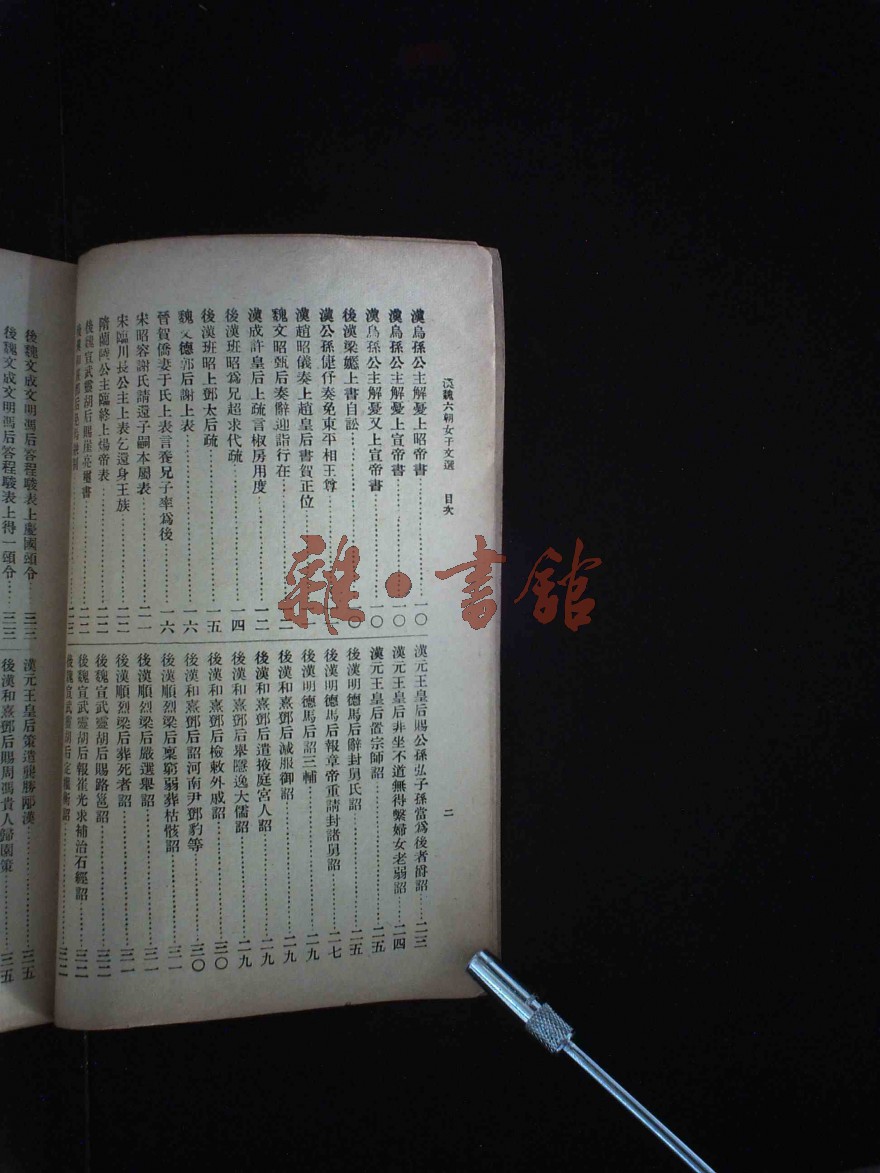 漢魏六朝女子文選 目次
二
漢烏孫公主解憂上昭帝書……一〇
漢烏孫公主解憂上宣帝書……一〇
漢烏孫公主解憂又上宣帝書……一〇
後漢梁嫕上書自訟……〇
漢公孫倢伃奏免東平相王尊……
漢趙昭儀奏上趙皇后書賀正位……
魏文昭甄后奏辭迎詣行在……
漢成許皇后上疏言椒房用度……一二
後漢班昭爲兄超求代疏……一四
後漢班昭上鄧太后疏……一五
魏文德郭后謝上表……一六
晉賀僑妻于氏上表言養兄子率爲後……一六
宋昭容謝氏請還子嗣本屬表……二一
宋臨川長公主上表乞還身王族……二二
隋蘭陵公主臨終上煬帝表……二二
後魏宣武靈胡后賜崔亮璽書……二二
漢元王皇后賜公孫弘子孫當爲後者爵詔……二三
漢元王皇后非坐不道無得繫婦女老弱詔……二四
漢元王皇后置宗師詔……二五
後漢明德馬后辭封舅氏詔……二五
後漢明德馬后報章帝重請封諸舅詔……二七
後漢明德馬后詔三輔……二九
後漢和熹鄧后減服御詔……二九
後漢和熹鄧后遣掖庭宮人詔……二九
後漢和熹鄧后舉隱逸大儒詔……二九
後漢和熹鄧后檢敕外戚詔……三〇
後漢和熹鄧后詔河南尹鄧豹等……三〇
後漢順烈梁后稟窮弱葬枯骸詔……三一
後漢順烈梁后嚴選舉詔……三一
後漢順烈梁后葬死者詔……三一
後魏宣武靈胡后賜路邕詔……三二
後魏宣武靈胡后報崔光求補治石經詔……三二
後魏宣武靈胡后定……詔……三二
後魏文成文明馮后答程駿表上慶國頌令……三三
後魏文成文明馮后答程駿表上得一頌令……三三
漢元王皇后策遣龔勝邴漢……三五
後漢和熹鄧后賜周馮貴人歸園策……三五
雜·書館